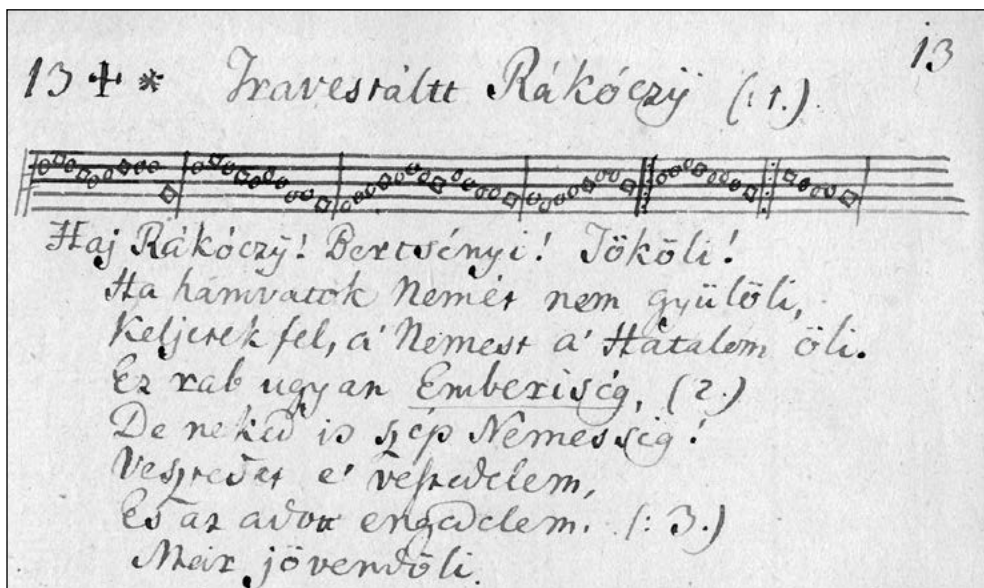 13
13 ✢ * Travestáltt Rákóczÿ (: 1.)
Haj Rákóczÿ! Bertsényi! Tököli!
Ha hamvatok Nemét nem gyülöli,
Keljetek fel, á Nemest a' Hatalem öli.
Ez rab ugyan Emberiség, (2.)
De neked is szép Nemesség!
Vesztedet e' veszedelem,
És az adott engedelem. (: 3.)
Már jövendöli.